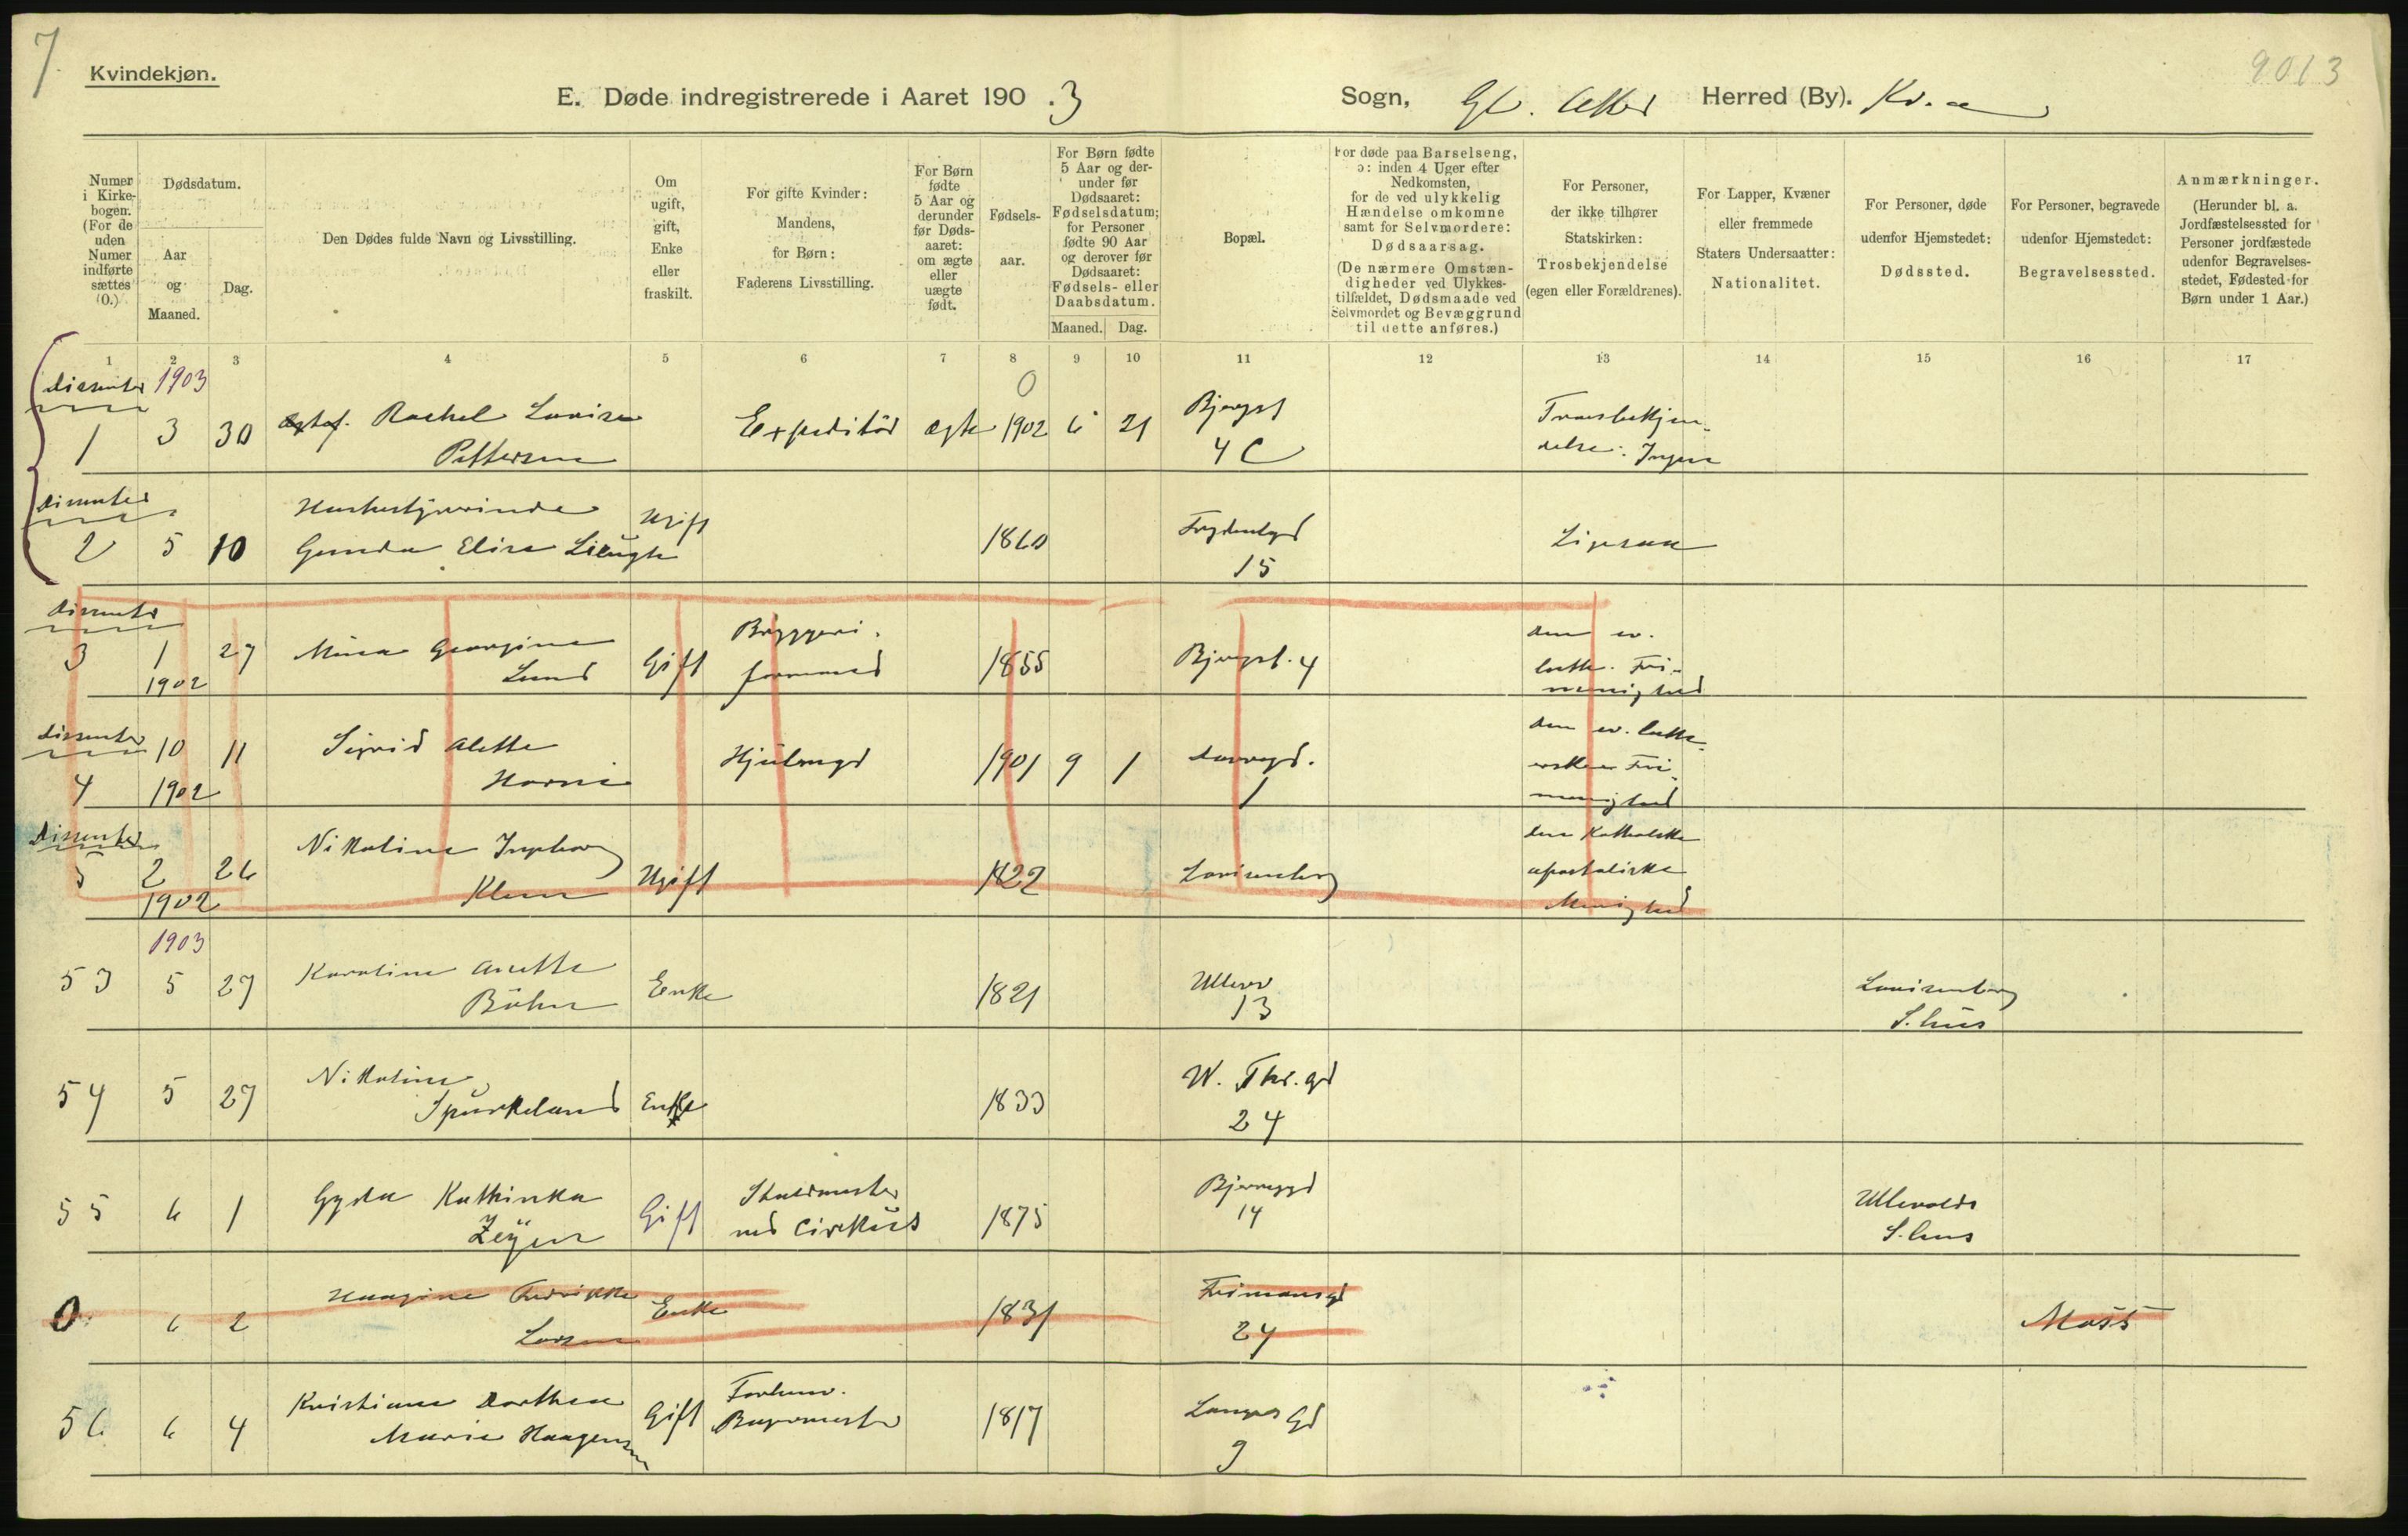 7.
Kvindekjøn.
9013
E. Døde indregistrerede i Aaret 190 .3
Sogn, Gl. Aker Herred (By). Kr.a
Numer i Kirkebogen. (For de uden Numer indførte sættes 0.)
Dødsdatum.
Aar og Maaned.
Dag.
Den Dødes fulde Navn og Livsstilling.
Om ugift, gift, Enke eller fraskilt.
For gifte Kvinder: Mandens, for Børn: Faderens Livsstilling.
For Børn fødte 5 Aar og derunder før Dødsaaret: om ægte eller uægte født.
Fødselsaar.
For Børn fødte 5 Aar og derunder før Dødsaaret: Fødselsdatum; for Personer fødte 90 Aar og derover før Dødsaaret: Fødsels- eller Daabsdatum.
Maaned. Dag.
Bopæl.
For døde paa Barselseng, ɔ: inden 4 Uger efter Nedkomsten, for de ved ulykkelig Hændelse omkomne samt for Selvmordere: Dødsaarsag. (De nærmere Omstændigheder ved Ulykkestilfældet, Dødsmaade ved Selvmordet og Bevæggrund til dette anføres.)
For Personer, der ikke tilhører Statskirken: Trosbekjendelse (egen eller Forældrenes).
For Lapper, Kvæner eller fremmede Staters Undersaatter: Nationalitet.
For Personer, døde udenfor Hjemstedet: Dødssted.
For Personer, begravede udenfor Hjemstedet: Begravelsessted.
Anmærkninger. (Herunder bl. a. Jordfæstelsessted for Personer jordfæstede udenfor Begravelsesstedet, Fødested for Børn under 1 Aar.)
1 2 3 4 5 6 7 8 9 10 11 12 13 14 15 16 17
dissenter 1903 0
1 3 30 Rachel Lovise Pettersen Expeditör ægte 1902 6 21 Bjergst 4 C Troesbekjendelse: Ingen
dissenter
2 5 10 Gunda Elise Ugift 1860 Frydenlgd 15
dissenter
3 1 1902 27 Mina Georgine Lund Gift Bryggeriformand 1855 Bjergst. 4 den ev. luth. Frimenighed
dissenter
4 10 1902 11 Sigrid Alette Hjulmgd 1901 9 1 1 den ev. lutherske Frimenighed
Dissenter
5 2 1902 26 Nikoline Ingeborg Ugift 1822 Lovisenberg den Katholske apostoliske Menighed
1903
53 5 27 Karoline Anette Böhn Enke 1821 Ullevv 13 Lovisenberg S.hus
54 5 27 Nikoline Spurkeland Enke 1833 W. Thr. gd 24
55 6 1 Gyda Kathinka Zeÿen Gift Staldmester ved Cirkus 1875 Bjerregd 14 Ullevolds S.hus
0 6 2 Haagine Fredrikke Larsen Enke 1831 Frimansgd 24 Moss
56 6 4 Kristiane Dorthea Marie Haagensen Gift Forhenv. Bagermester 1817 Langes Gd 9